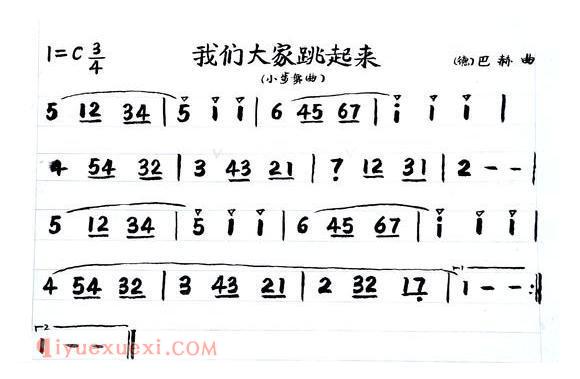 1=C 3/4 我们大家跳起来 (德)巴赫 曲
(小步舞曲)
5 12 34 | 5 i i | 6 45 67 | i i i |
4 54 32 | 3 43 21 | 7 12 31 | 2 - - |
5 12 34 | 5 i i | 6 45 67 | i i i |
4 54 32 | 3 43 21 | 2 32 17 | 1 - - :|
1 - - ‖
qiyuexuexi.COM